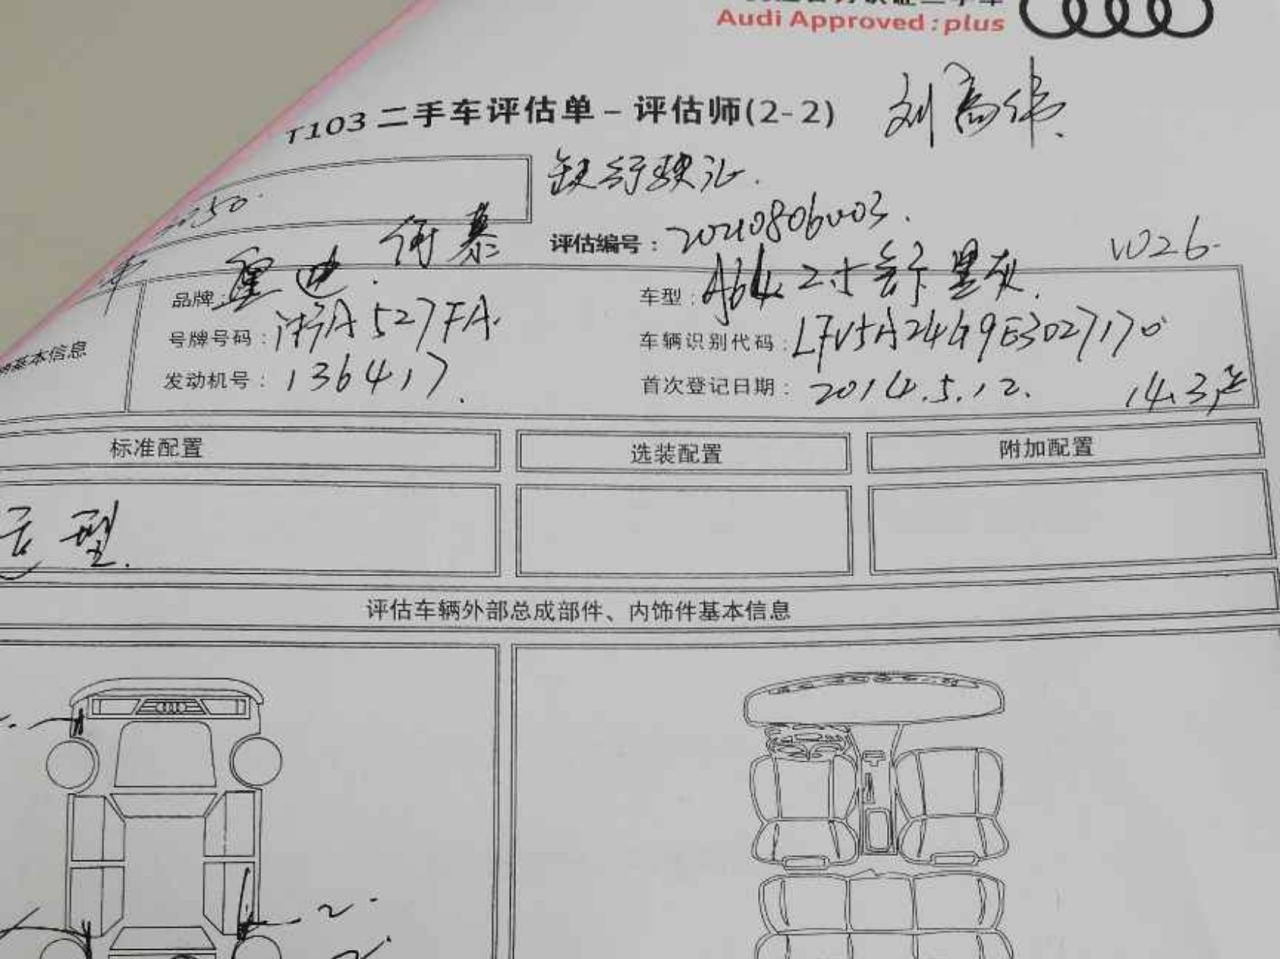 Audi Approved:plus
T103 二手车评估单 – 评估师(2-2) 刘高伟
缺行驶证.
评估编号：20210806003. V026.
品牌：奥迪
车型：A6L
号牌号码：浙A527FA.
车辆识别代码：LFV5A24G9E3027170
基本信息
发动机号：136417.
首次登记日期：2014.5.12. 14.3产
标准配置
选装配置
附加配置
型.
评估车辆外部总成部件、内饰件基本信息
2.